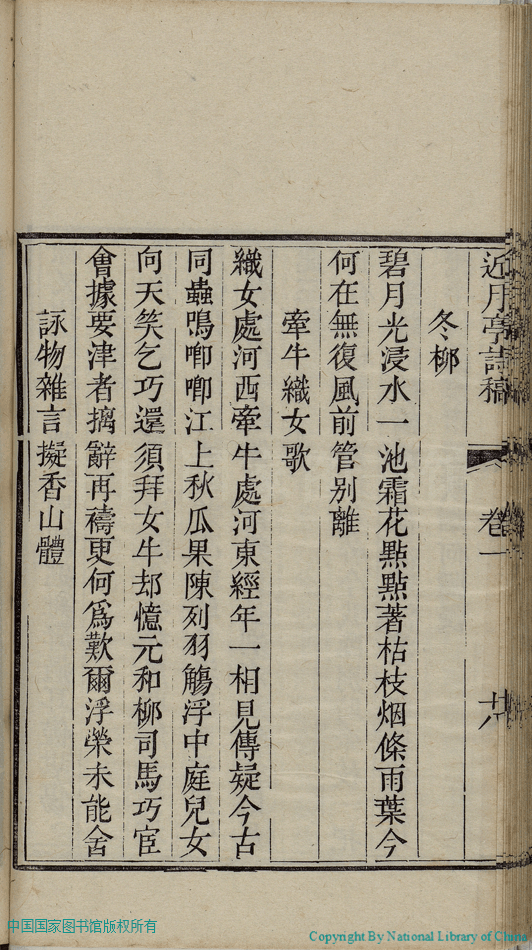 近月亭詩稿 卷一 十六
冬柳
碧月光浸水一池霜花點點著枯枝烟條雨葉今
何在無復風前管别離
牽牛織女歌
織女處河西牽牛處河東經年一相見傳疑今古
同蟲鳴唧唧江上秋瓜果陳列羽觴浮中庭兒女
向天笑乞巧還須拜女牛却憶元和柳司馬巧宦
曾據要津者摛辭再禱更何為歎爾浮榮未能舍
詠物雜言擬香山體
中国国家图书馆版权所有
Copyright By National Library of China